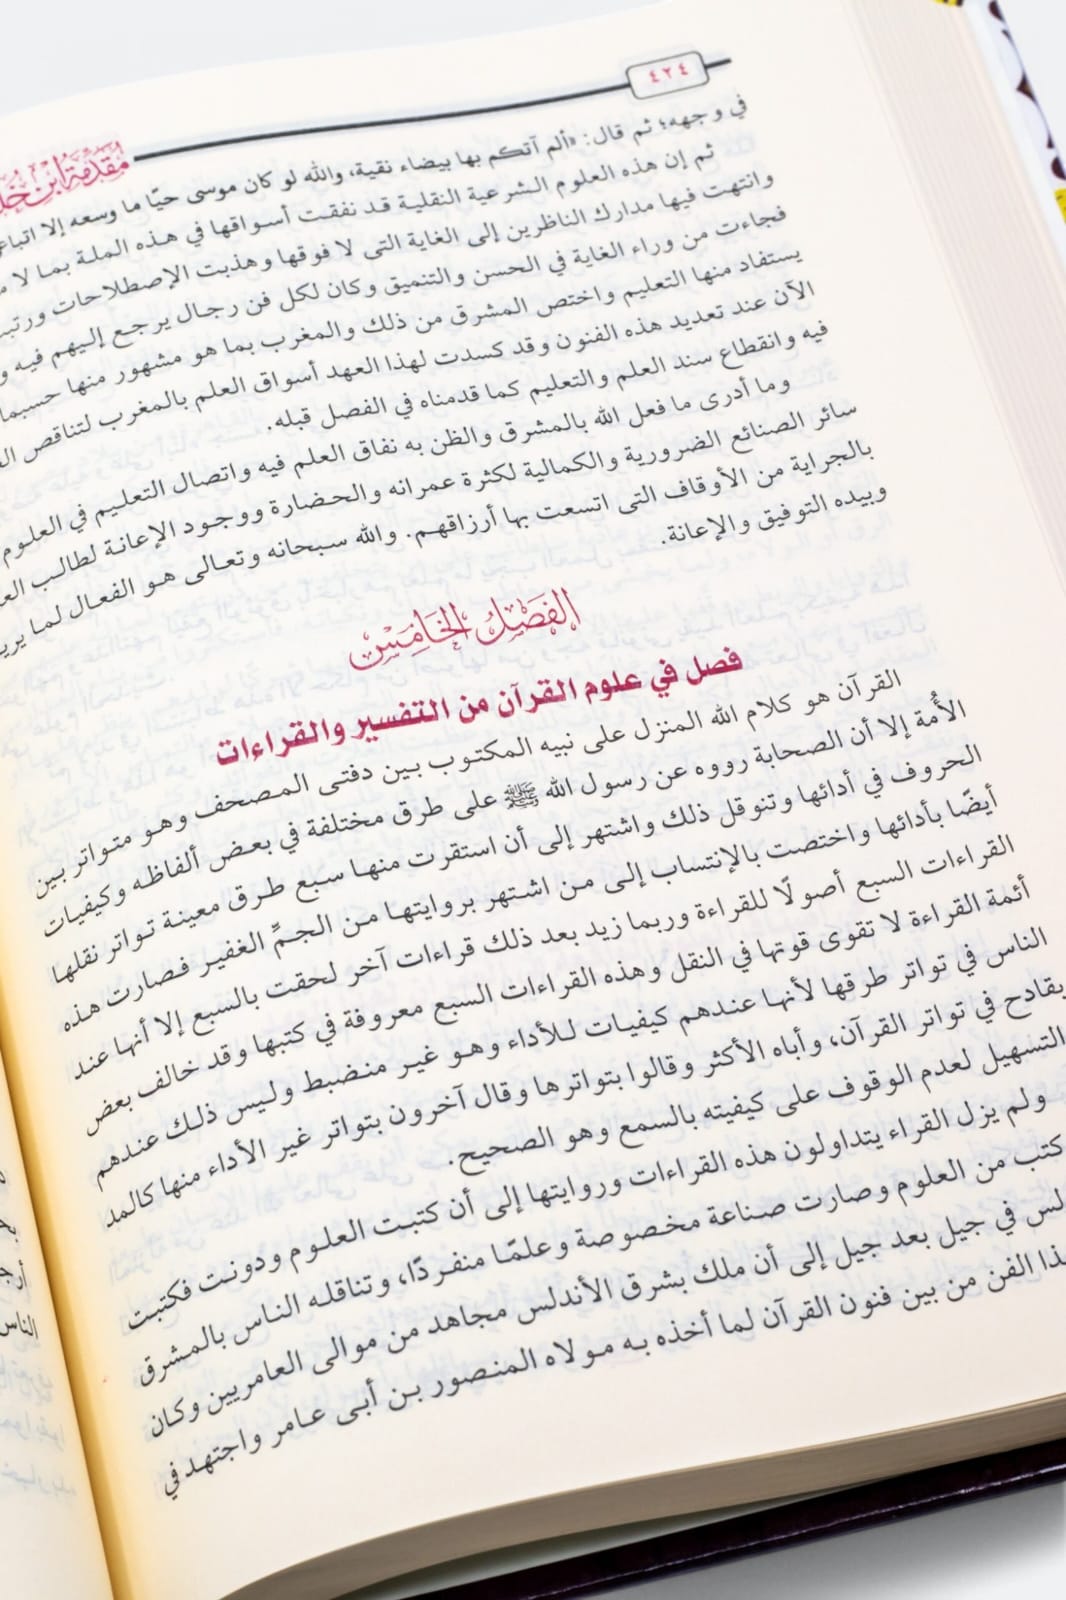 ٤٢٤
مقدمة ابن
في وجهه؛ ثم قال: «ألم آتكم بها بيضاء نقية، والله لو كان موسى حيًا ما وسعه إلا
ثم إن هذه العلوم الشرعية النقلية قد نفقت أسواقها في هذه الملة بما لا
وانتهت فيها مدارك الناظرين إلى الغاية التى لا فوقها وهذبت الإصطلاحات
فجاءت من وراء الغاية في الحسن والتنميق وكان لكل فن رجال يرجع إليهم فيه
يستفاد منها التعليم واختص المشرق من ذلك والمغرب بما هو مشهور منها
الآن عند تعديد هذه الفنون وقد كسدت لهذا العهد أسواق العلم بالمغرب لتناقص
فيه وانقطاع سند العلم والتعليم كما قدمناه في الفصل قبله.
وما أدرى ما فعل الله بالمشرق والظن به نفاق العلم فيه واتصال التعليم في العلوم
سائر الصنائع الضرورية والكمالية لكثرة عمرانه والحضارة ووجود الإعانة لطالب
بالجراية من الأوقاف التى اتسعت بها أرزاقهم. والله سبحانه وتعالى هو الفعال لما
وبيده التوفيق والإعانة.
الفصل الخامس
فصل في علوم القرآن من التفسير والقراءات
القرآن هو كلام الله المنزل على نبيه المكتوب بين دفتى المصحف وهو متواتر بين
الأُمة إلا أن الصحابة رووه عن رسول الله ﷺ على طرق مختلفة في بعض ألفاظه وكيفيات
الحروف في أدائها وتنوقل ذلك واشتهر إلى أن استقرت منها سبع طرق معينة تواتر نقلها
أيضًا بأدائها واختصت بالإنتساب إلى من اشتهر بروايتها من الجمِّ الغفير فصارت هذه
القراءات السبع أصولًا للقراءة وربما زيد بعد ذلك قراءات آخر لحقت بالسبع إلا أنها عند
أئمة القراءة لا تقوى قوتها في النقل وهذه القراءات السبع معروفة في كتبها وقد خالف بعض
الناس في تواتر طرقها لأنها عندهم كيفيات للأداء وهو غير منضبط وليس ذلك عندهم
بقادح في تواتر القرآن، وأباه الأكثر وقالوا بتواترها وقال آخرون بتواتر غير الأداء منها كالمد
التسهيل لعدم الوقوف على كيفيته بالسمع وهو الصحيح.
ولم يزل القراء يتداولون هذه القراءات وروايتها إلى أن كتبت العلوم ودونت فكتبت
كتب من العلوم وصارت صناعة مخصوصة وعلمًا منفردًا، وتناقله الناس بالمشرق
في جيل بعد جيل إلى أن ملك بشرق الأندلس مجاهد من موالى العامريين وكان
الفن من بين فنون القرآن لما أخذه به مولاه المنصور بن أبى عامر واجتهد في